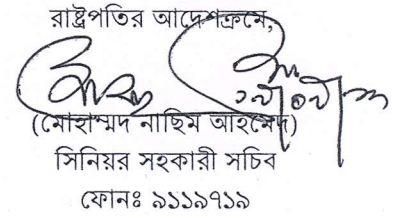 রাষ্ট্রপতির আদেশক্রমে,
(মোহাম্মদ নাছিম আহমেদ)
সিনিয়র সহকারী সচিব
ফোনঃ ৯১১৯৭১৯